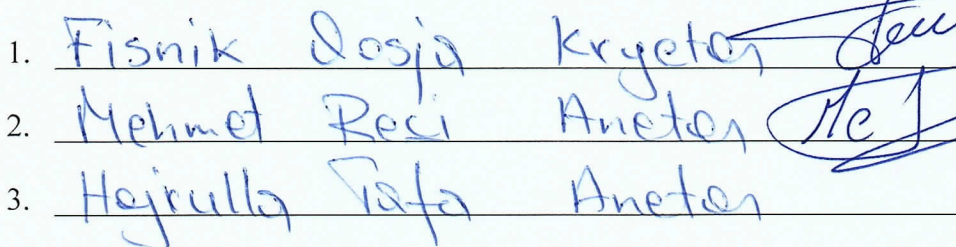 1. Fisnik Qosja Kryetar
2. Mehmet Reci Anetar
3. Hajrulla Tafa Anetar